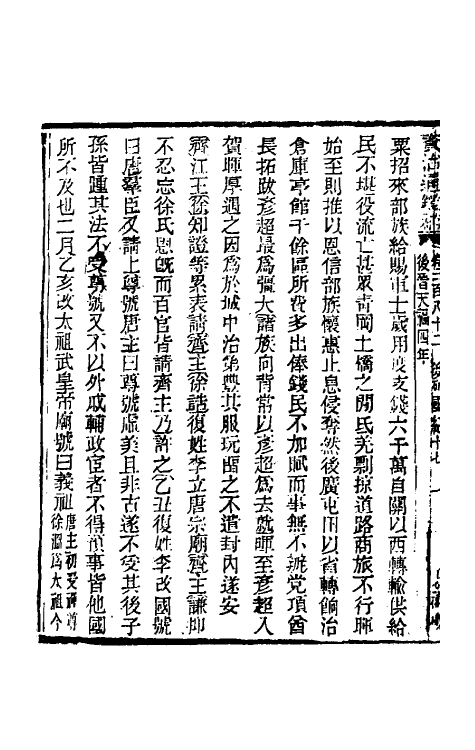 後晉天福四年
粟招來部族給賜軍士歲用度支錢六千萬自關以西轉輸供給
民不堪役流亡甚眾青岡土橋之閒氐羌剽掠道路商旅不行暉
始至則推以恩信部族懷惠止息侵奪然後廣屯田以省轉餉治
倉庫亭館千餘區所費多出俸錢民不加賦而事無不辦党項酋
長拓跋彥超最爲彊大諸族向背常以彥超爲去就暉至彥超入
賀暉厚遇之因爲於城中治第豐其服玩留之不遣封內遂安
齊江王徐知證等累表請齊主徐誥復姓李立唐宗廟齊主謙抑
不忍忘徐氏恩旣而百官皆請齊主乃許之乙丑復姓李改國號
曰唐羣臣又請上尊號唐主曰尊號虛美且非古遂不受其後子
孫皆踵其法不受尊號又不以外戚輔政宦者不得預事皆他國
所不及也二月乙亥改太祖武皇帝廟號曰義祖唐主初受禪尊徐溫爲太祖今